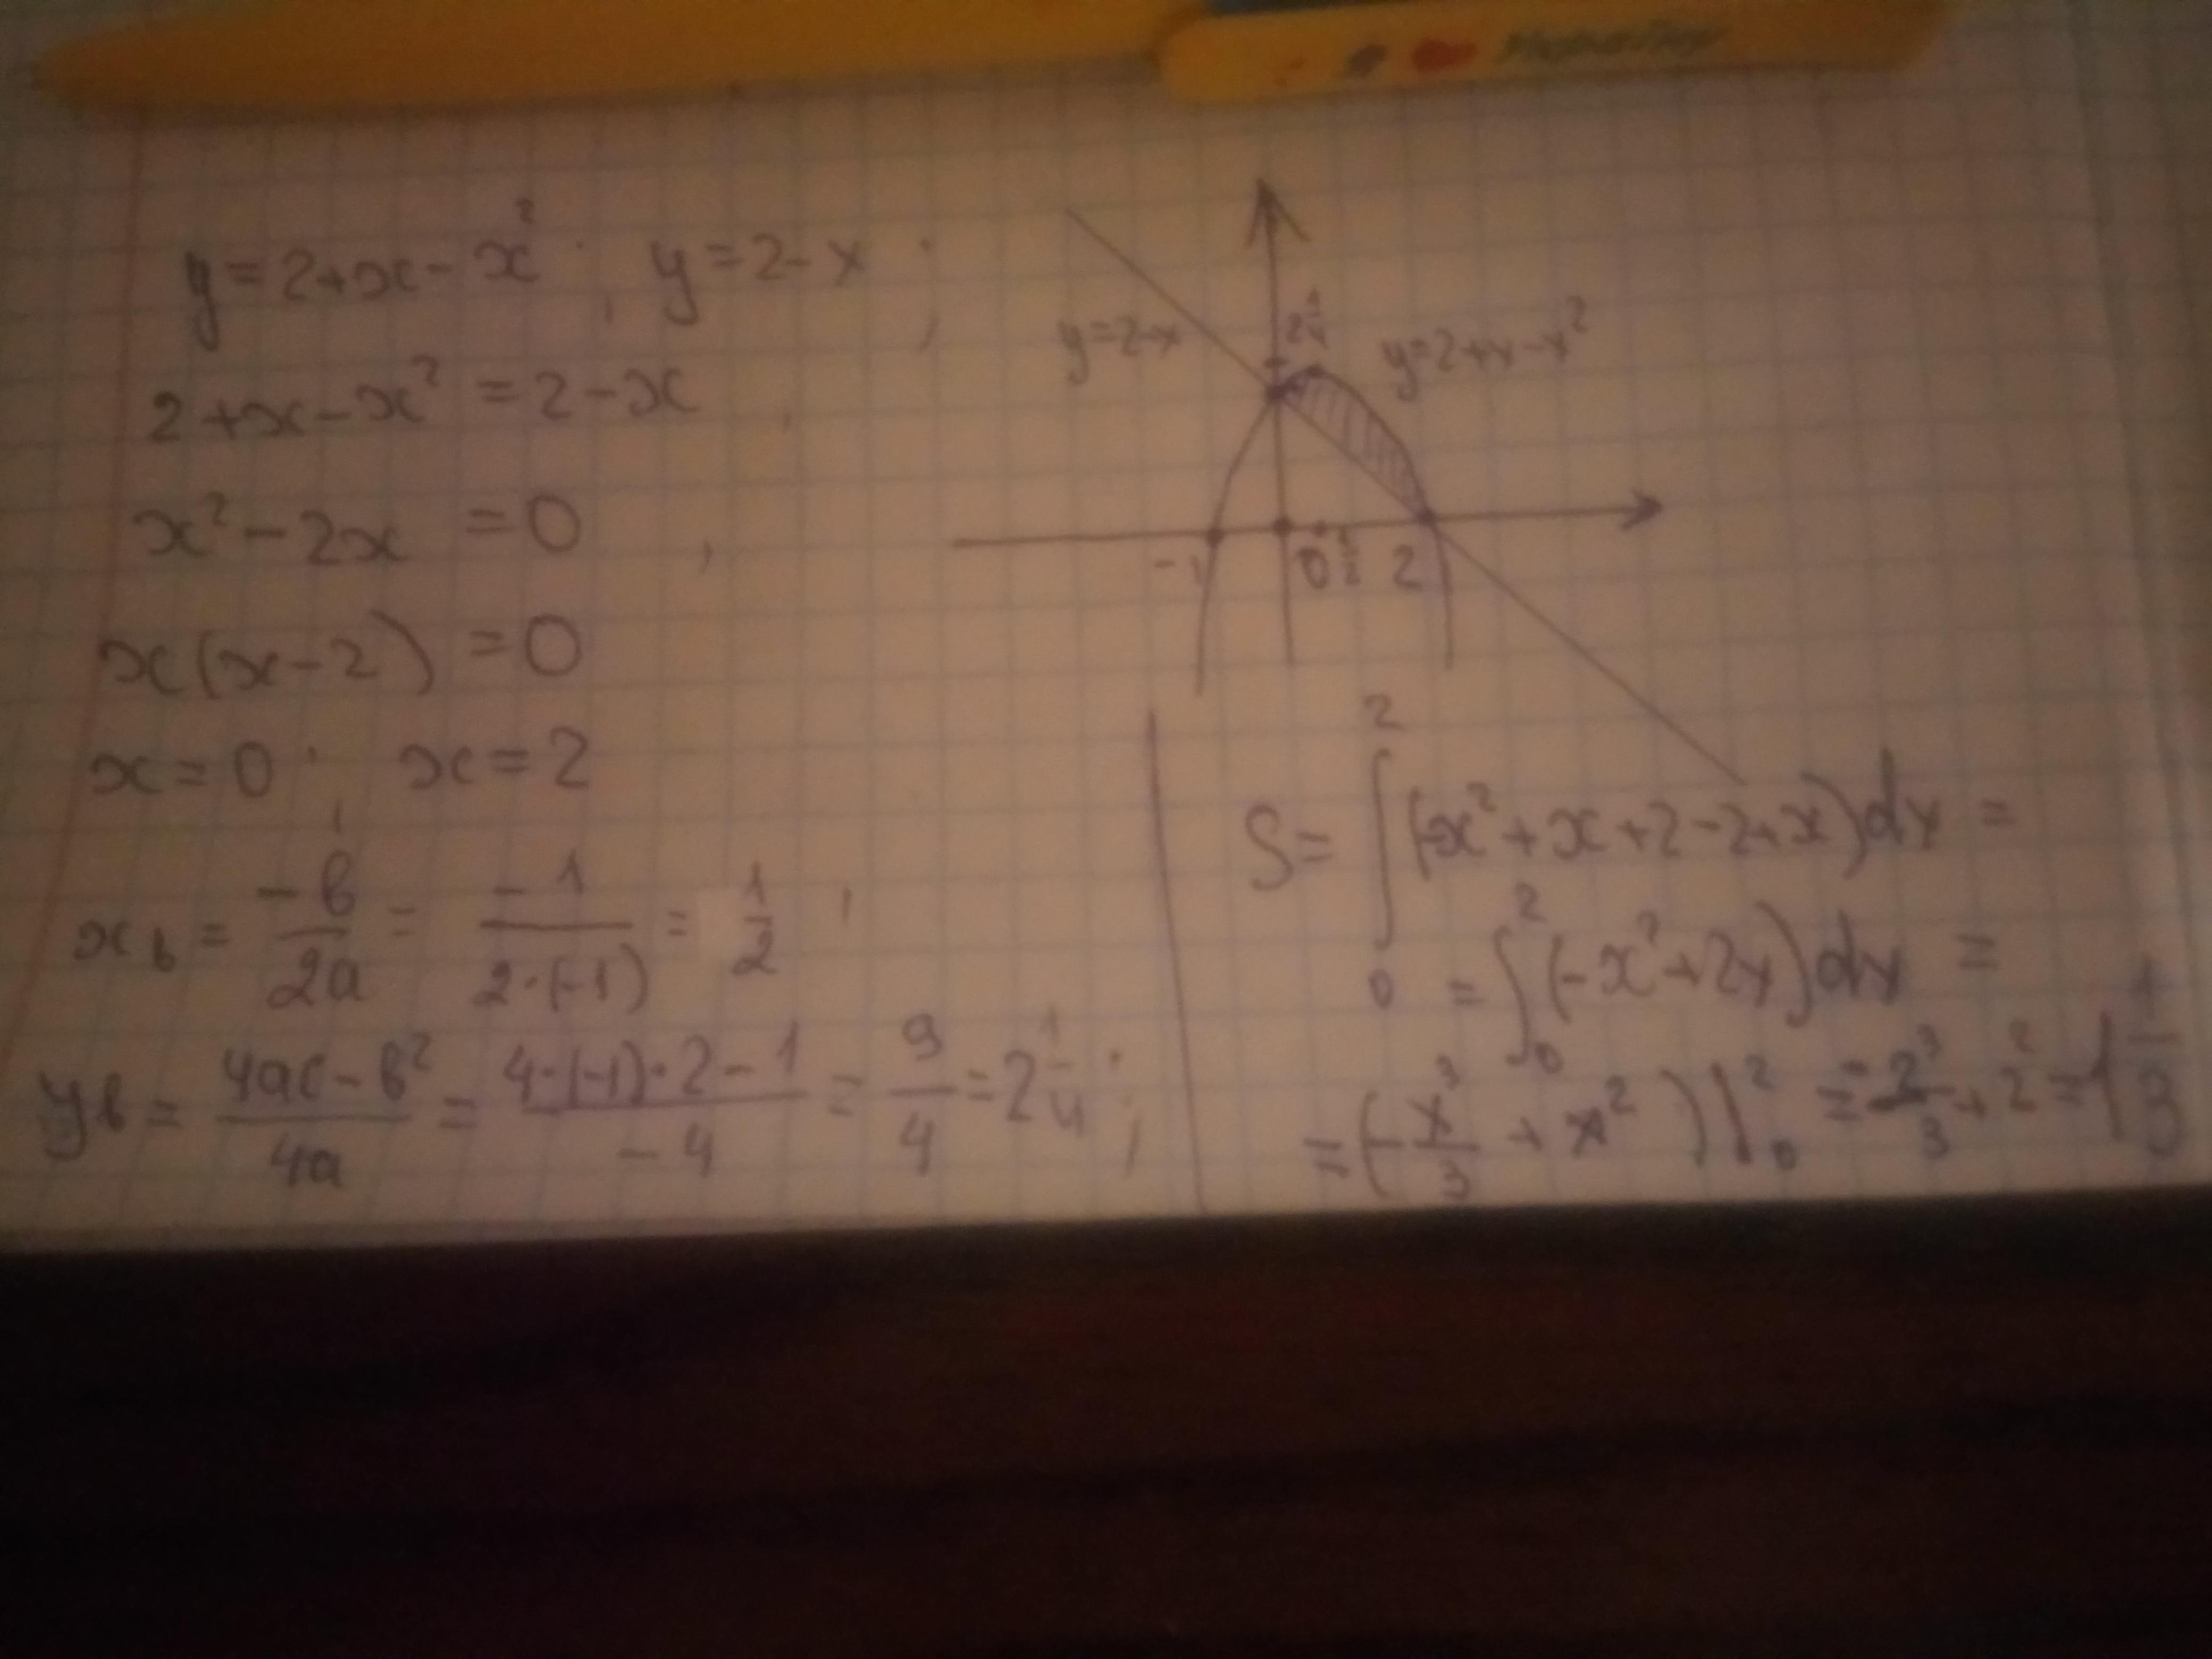 y=2+x-x²; y=2-x;
2+x-x²=2-x,
x²-2x=0,
x(x-2)=0
x=0; x=2
xв = -в/2а = -1/2·(-1) = 1/2,
yв = 4ac-в²/4а = 4·(-1)·2-1/-4 = 9/4 = 2 1/4;
2 1/4
y=2-x
y=2+x-x²
-1 0 1/2 2
S= ∫₀² (-x²+x+2-2+x)dx =
= ∫₀² (-x²+2x)dx =
= (-x³/3 + x²)|₀² = -2³/3 + 2² = 1 1/3